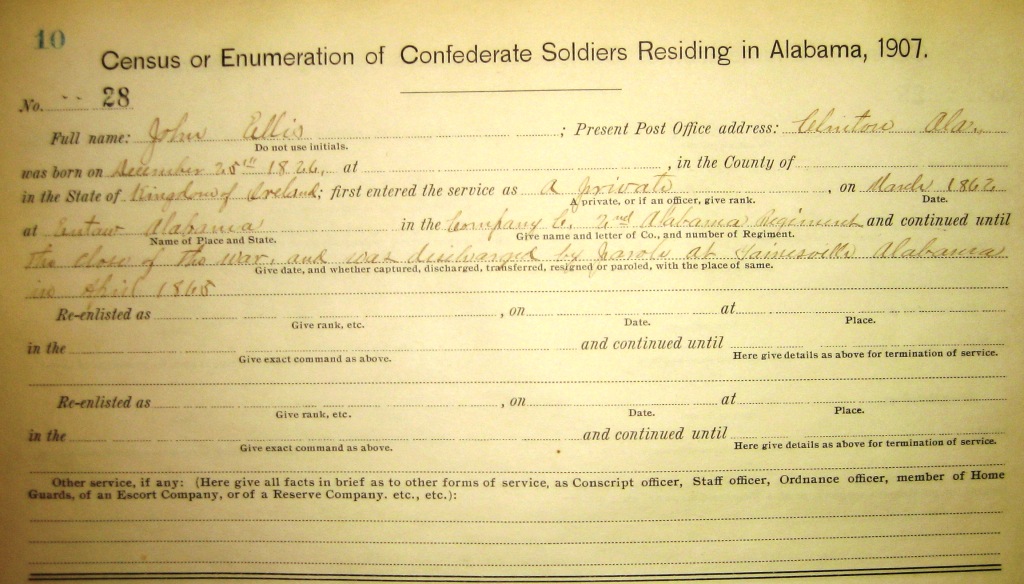 10
Census or Enumeration of Confederate Soldiers Residing in Alabama, 1907.
No. 28
Full name: John Ellis ; Present Post Office address: Clinton Ala.
Do not use initials.
was born on December 25th 1826, at , in the County of
in the State of Kingdom of Ireland; first entered the service as a private , on March 1862
A private, or if an officer, give rank. Date.
at Eutaw Alabama in the Company C. 2nd Alabama Regiment and continued until
Name of Place and State. Give name and letter of Co., and number of Regiment.
the close of the war, and was discharged by parole at Gainesville Alabama
Give date, and whether captured, discharged, transferred, resigned or paroled, with the place of same.
in April 1865
Re-enlisted as , on at
Give rank, etc. Date. Place.
in the and continued until
Give exact command as above. Here give details as above for termination of service.
Re-enlisted as , on at
Give rank, etc. Date. Place.
in the and continued until
Give exact command as above. Here give details as above for termination of service.
Other service, if any: (Here give all facts in brief as to other forms of service, as Conscript officer, Staff officer, Ordnance officer, member of Home
Guards, of an Escort Company, or of a Reserve Company. etc., etc.):